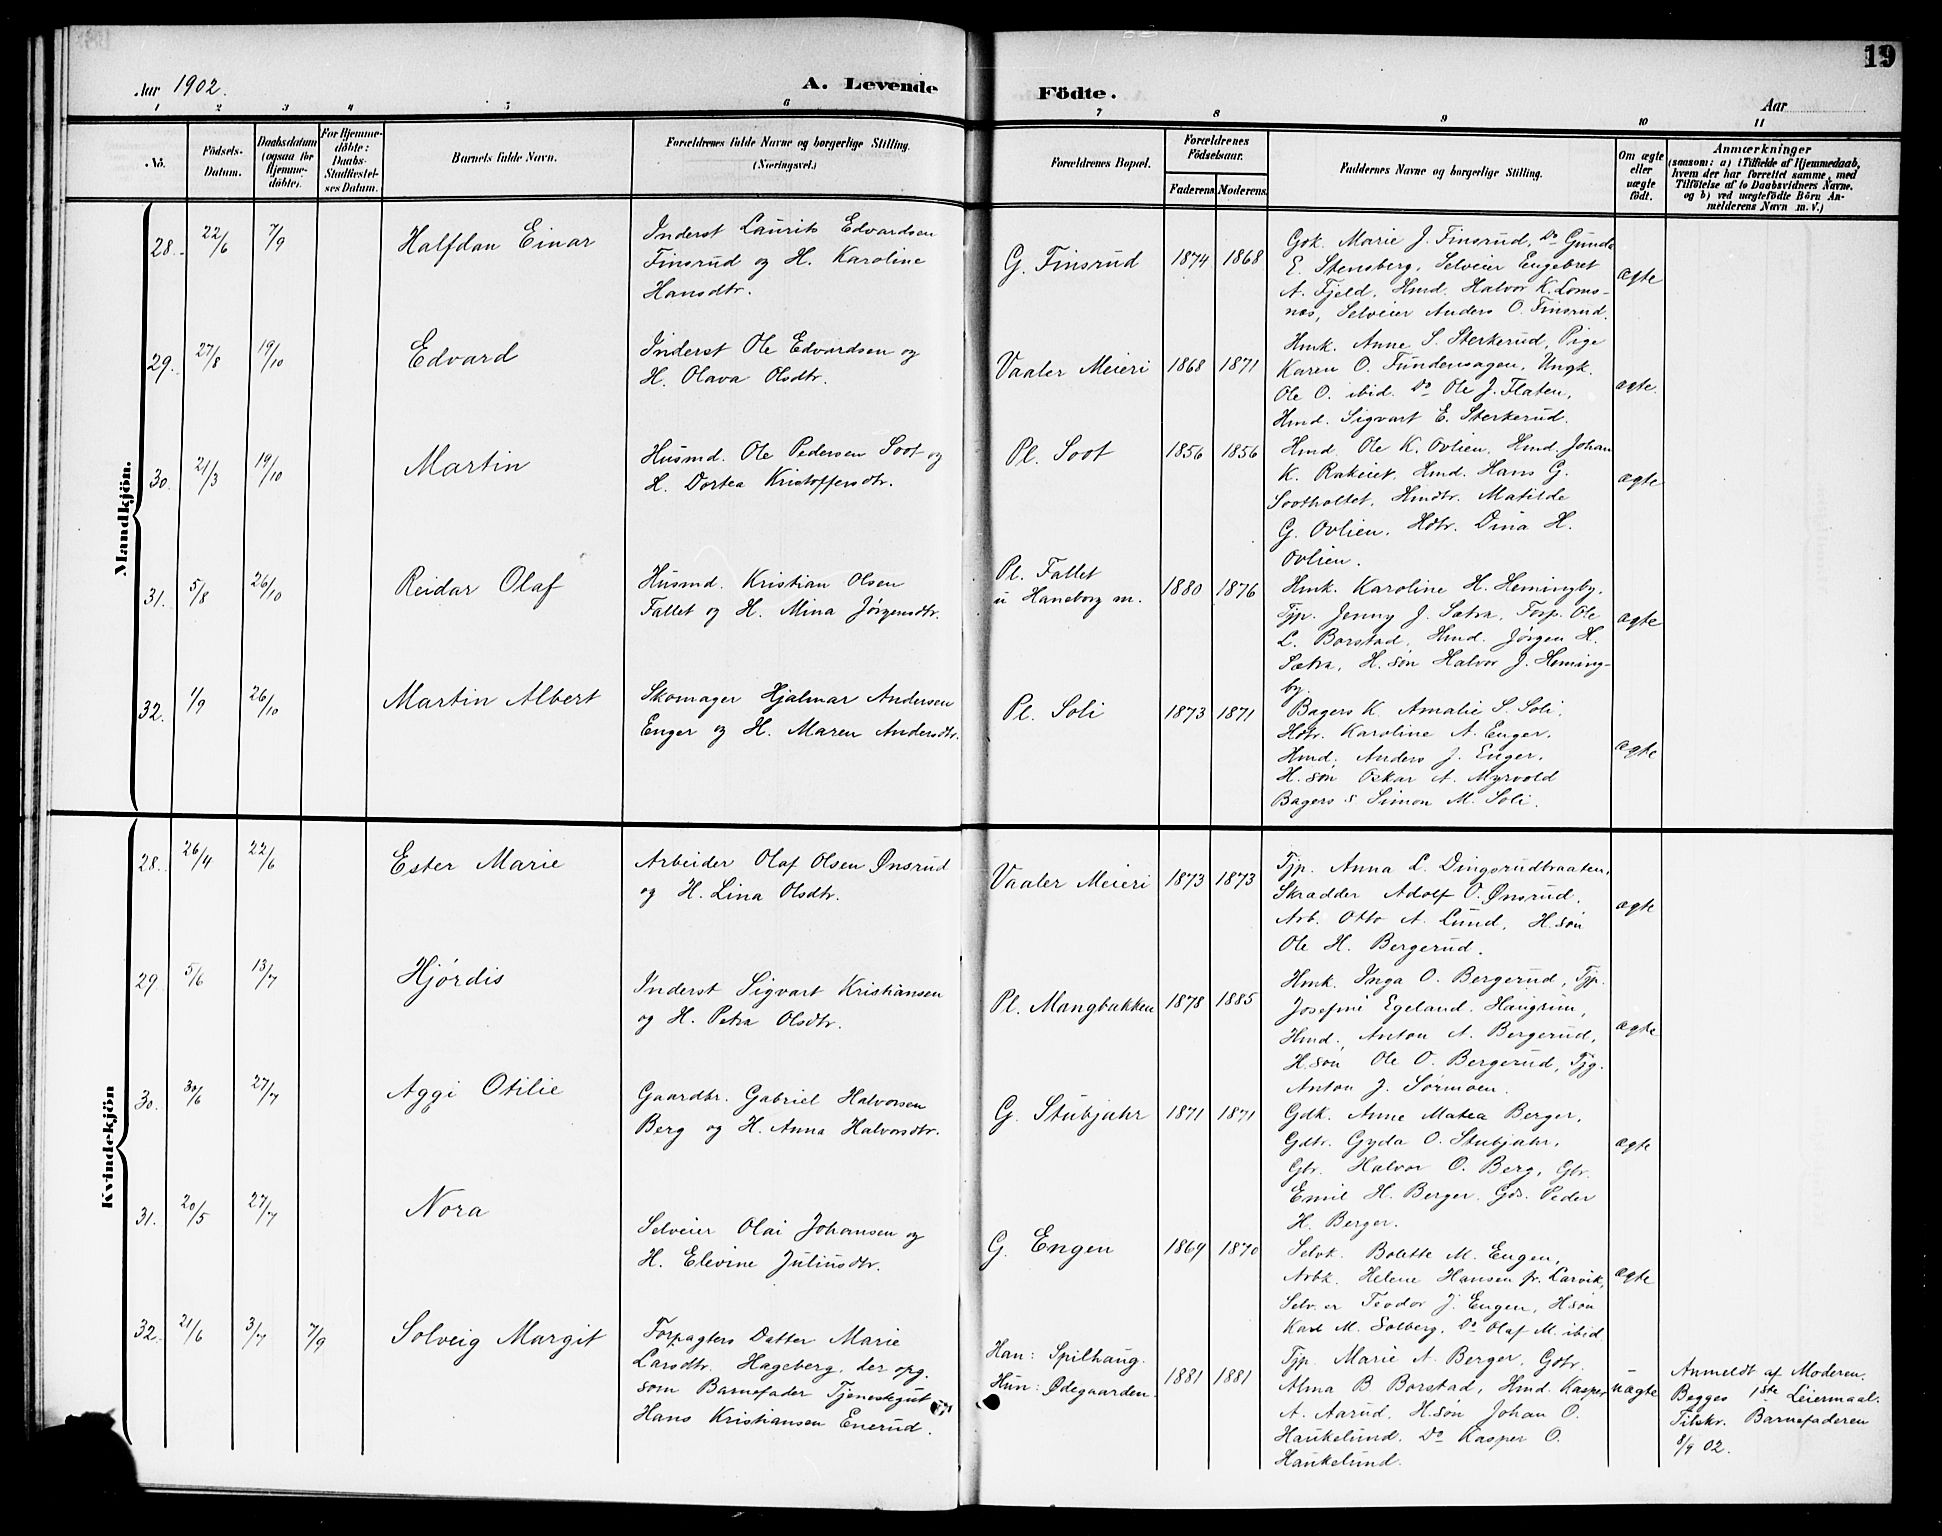 19
Aar 1902. A. Levende Födte. Aar
1 2 3 4 5 6 7 8 9 10 11
No. Födsels-Datum. Daabsdatum (ogsaa for Hjemmedöbte). For Hjemmedöbte: Daabs-Stadfæstelses Datum. Barnets fulde Navn. Forældrenes fulde Navne og borgerlige Stilling. (Næringsvei.) Forældrenes Bopæl. Forældrenes Födselsaar. Faderens. Moderens. Faddernes Navne og borgerlige Stilling. Om ægte eller uægte födt. Anmærkninger (saasom: a) i Tilfælde af Hjemmedaab, hvem der har forrettet samme, med Tilföielse af to Daabsvidners Navne, og b) ved uægtefödte Börn Anmelderens Navn m. v.)
Mandkjön.
28. 22/6 7/9 Halfdan Einar
Inderst Laurits Edvardsen
Finsrud og H. Karoline
Hansdtr.
G. Finsrud 1874 1868
Gdk. Marie J. Finsrud, Do Gunda
E. Stensberg, Selveier Engebret
A. Fjeld, Hmd. Halvor K. Loms-
næs, Selveier Anders O. Finsrud.
ægte
29. 27/8 19/10 Edvard
Inderst Ole Edvardsen og
H. Olava Olsdtr.
Vaaler Meieri 1868 1871
Hmk. Anne S. Sterkerud, Pige
Karen O. Tundensagen, Ungk.
Ole O. ibid. Do Ole J. Flaten,
Hmd. Sigvart E. Sterkerud.
ægte.
30. 21/3 19/10 Martin
Husmd. Ole Pedersen Soot og
H. Dortea Kristoffersdtr.
Pl. Soot 1856 1856
Hmd. Ole K. Ovlien, Hmd. Johan
K. Rakeiet, Hmd. Hans G.
Sootholtet, Hmdtr. Matilde
G. Ovlien, Hdtr. Dina H.
Ovlien.
ægte
31. 5/8 26/10 Reidar Olaf
Husmd. Kristian Olsen
Fallet og H. Mina Jørgensdtr.
Pl. Fallet
u Haneborg m. 1880 1876
Hmk. Karoline H. Hemingby,
Tjp. Jenny J. Sætra, Forp. Ole
L. Borstad, Hmd. Jørgen H.
Sætra, H.søn Halvor J. Heming-
by.
ægte
32. 1/9 26/10 Martin Albert
Skomager Hjalmar Andersen
Enger og H. Maren Andersdtr.
Pl. Soli 1873 1871
Bagers K. Amalie S. Soli,
Hdtr. Karoline A. Enger,
Hmd. Anders J. Enger,
H. søn Oskar A. Myrvold
Bagers s Simon M. Soli.
ægte
Kvindekjön
28. 26/4 22/6 Ester Marie
Arbeider Olaf Olsen Ønsrud
og H. Lina Olsdtr.
Vaaler Meieri 1873 1873
Tjp. Anna L. Dingsrudbraaten,
Skrædder Adolf O. Ønsrud,
Arb. Otto A. Lund, H.søn
Ole H. Bergerud.
ægte
29 5/6 13/7 Hjørdis
Inderst Sigvart Kristiansen
og H. Petra Olsdtr.
Pl. Mangbakken 1878 1885
Hmk. Inga O. Bergerud, Tjp.
Josefine Egeland. Haugrim,
Hmd. Anton A. Bergerud,
H.søn Ole O. Bergerud, Tjg.
Anton J. Sørmoen.
ægte
30. 30/6 27/7 Aggi Otilie
Gaardbr. Gabriel Halvorsen
Berg og H. Anna Halvorsdtr.
G. Stubjahr 1871 1871
Gdk. Anne Matea Berger,
Gdtr. Gyda O. Stubjahr,
Gbr. Halvor O. Berg, Gbr.
Emil H. Berger, Gds. Peder
H. Berger.
ægte
31. 20/5 27/7 Nora
Selveier Olai Johansen og
H. Elevine Juliusdtr.
G. Engen 1869 1870
Selvk. Bolette M. Engen,
Arbk. Helene Hansen fr. Larvik,
Selv.er Teodor J. Engen, H søn
Karl M. Solberg, Do Olaf M. ibid
ægte
32. 21/6 3/7 7/9 Solveig Margit
Forpagters Datter Marie
Larsdtr. Hageberg, der opg.
som Barnefader Tjenestegut
Hans Kristiansen Enerud.
Han: Spilhaug.
Hun: Ødegaarden. 1881 1881
Tjp. Marie A. Berger, Gdtr.
Alma B. Borstad, Hmd. Kasper
A. Aarud, H.søn Johan O.
Haukelund, Do Kasper O.
Haukelund.
uægte
Anmeldt af Moderen.
Begges 1ste Leiermaal.
Tilskr. Barnefaderen
8/9 02.